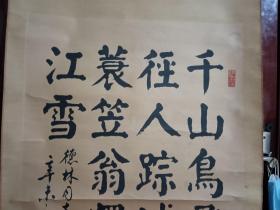 千山鳥
径人踪
蓑笠翁
江雪
德林同
辛未